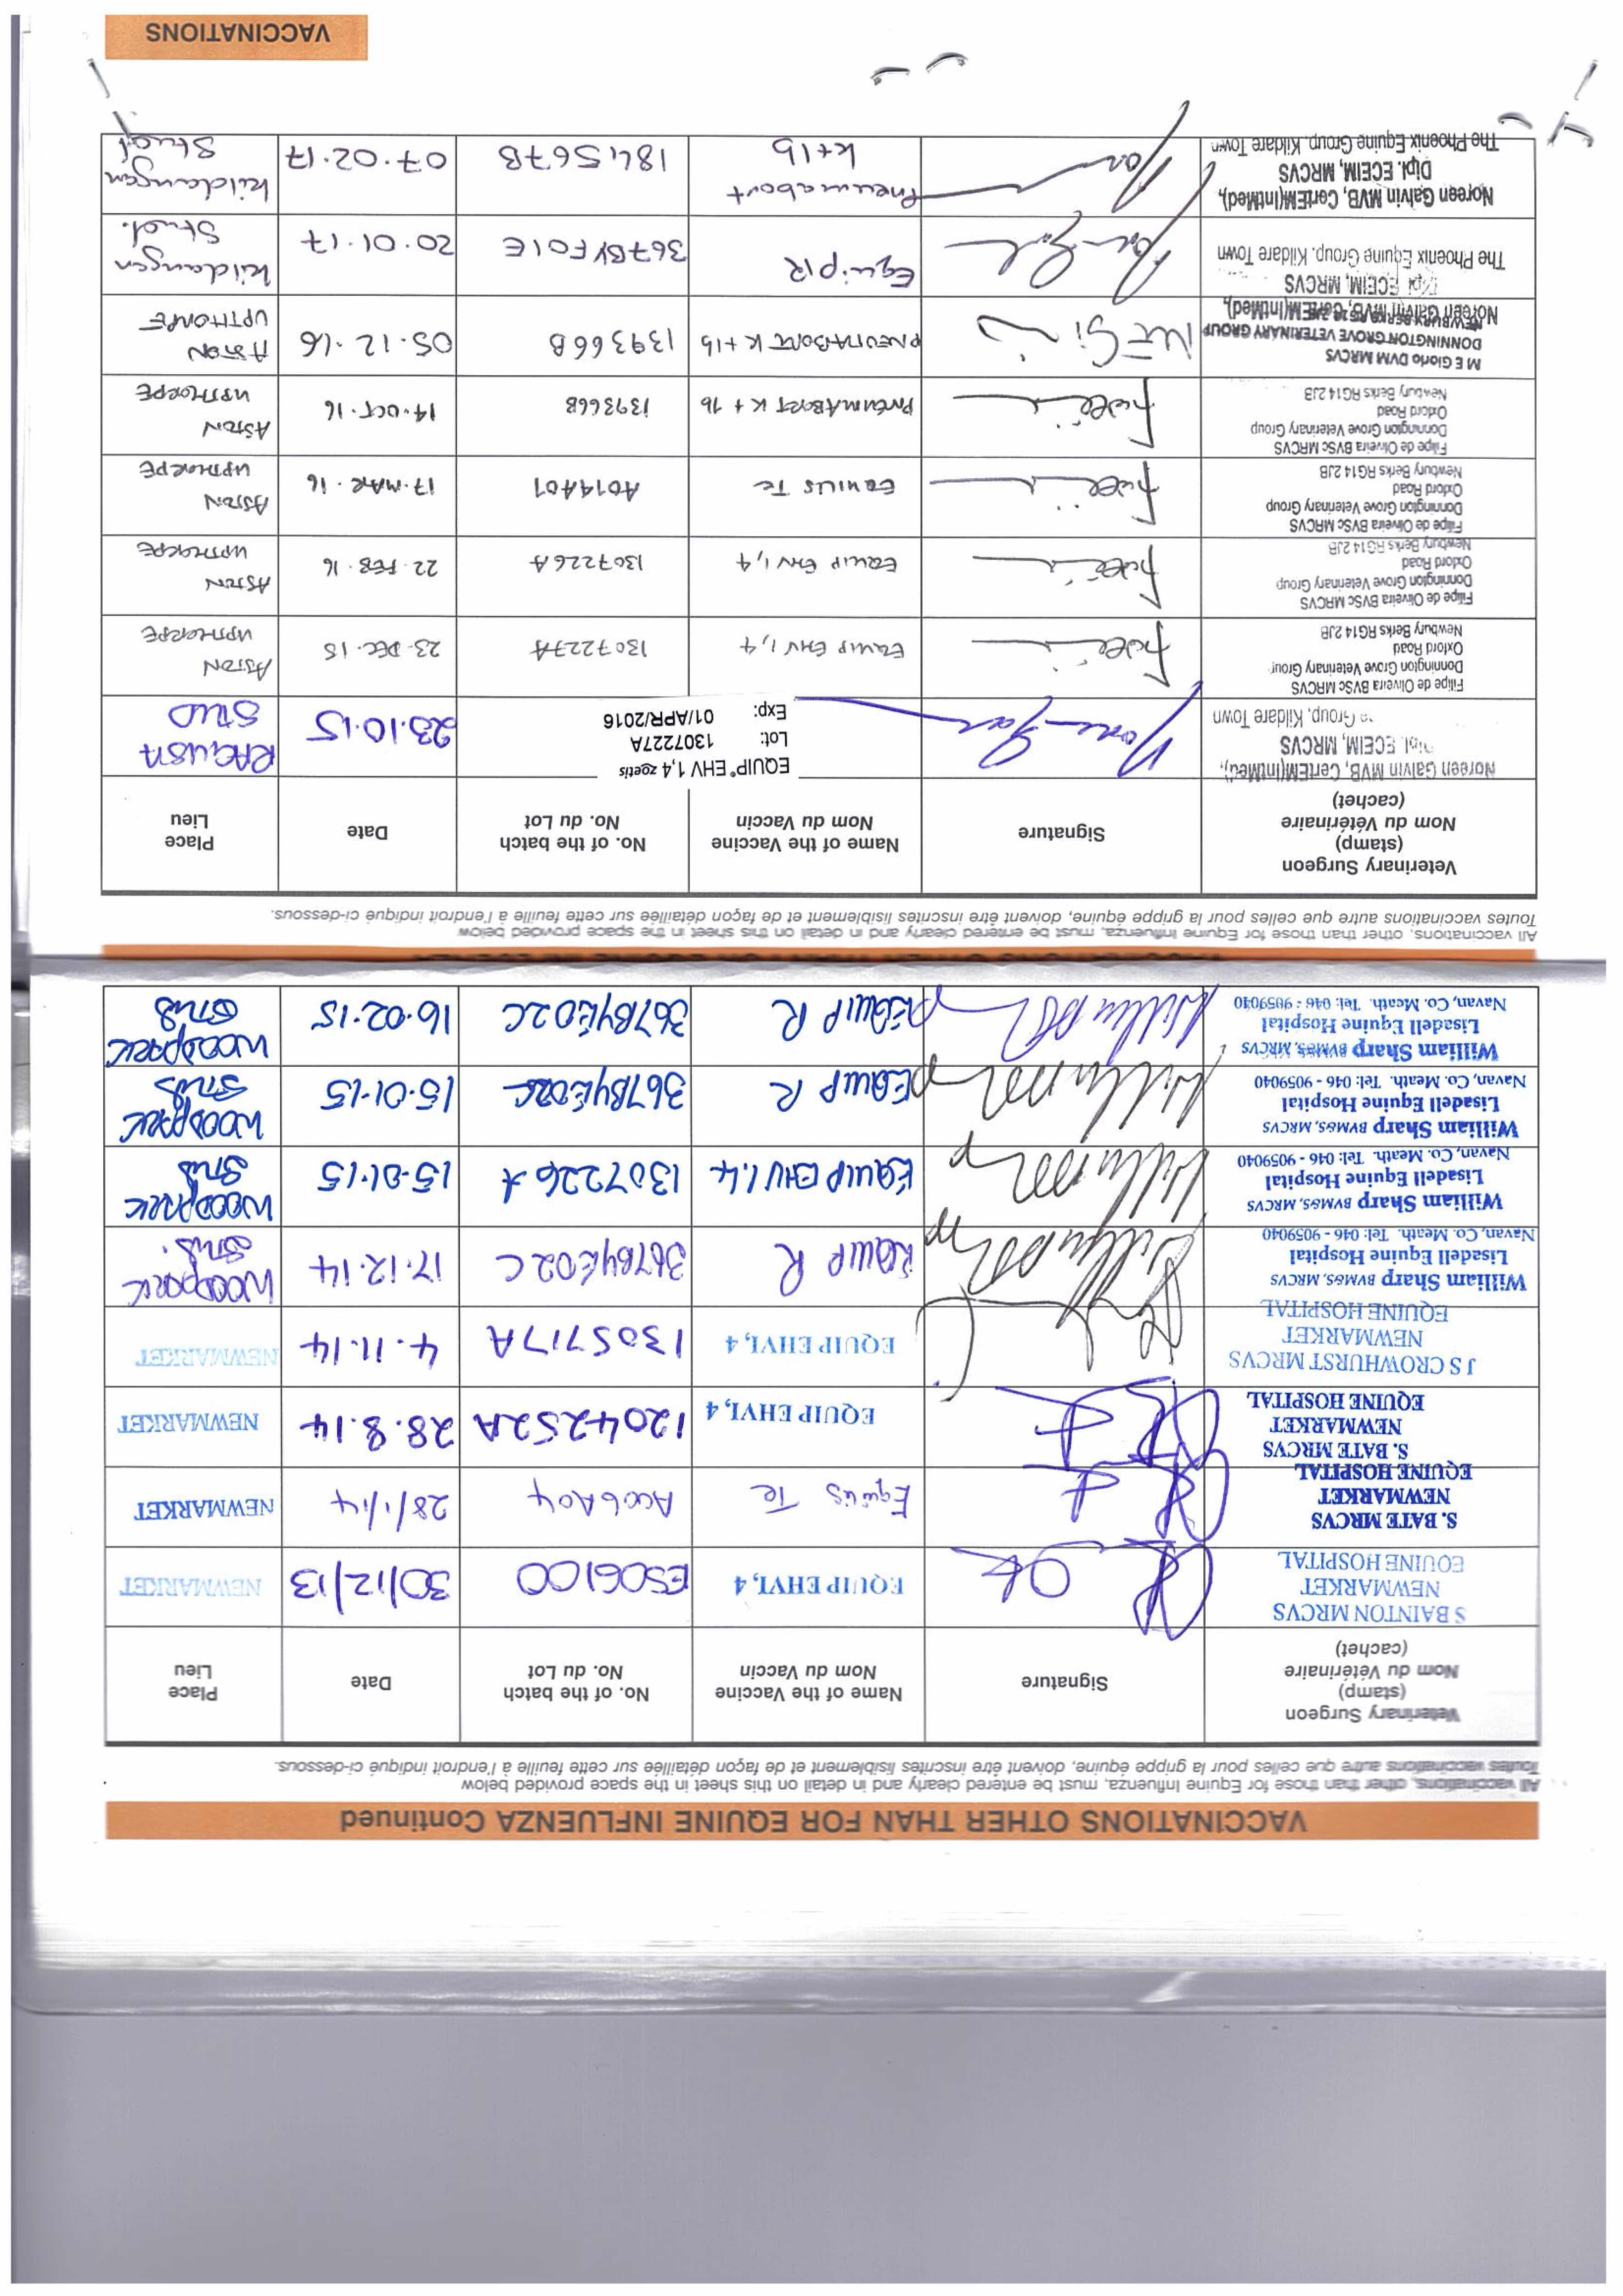 VACCINATIONS OTHER THAN FOR EQUINE INFLUENZA Continued
All vaccinations, other than those for Equine Influenza, must be entered clearly and in detail on this sheet in the space provided below
Toutes vaccinations autre que celles pour la grippe équine, doivent être inscrites lisiblement et de façon détaillée sur cette feuille à l'endroit indiqué ci-dessous.
Veterinary Surgeon
(stamp)
Nom du Vétérinaire
(cachet)
Signature
Name of the Vaccine
Nom du Vaccin
No. of the batch
No. du Lot
Date
Place
Lieu
S BAINTON MRCVS
NEWMARKET
EQUINE HOSPITAL
EQUIP EHV1,4
ES06100
30/12/13
NEWMARKET
S. BATE MRCVS
NEWMARKET
EQUINE HOSPITAL
Equilis Te
A006A04
28/1/14
NEWMARKET
S. BATE MRCVS
NEWMARKET
EQUINE HOSPITAL
EQUIP EHV1,4
1204252A
28.8.14
NEWMARKET
J S CROWHURST MRCVS
NEWMARKET
EQUINE HOSPITAL
EQUIP EHV1,4
1305717A
4.11.14
NEWMARKET
William Sharp BVM&S, MRCVS
Lisadell Equine Hospital
Navan, Co. Meath. Tel: 046 - 9059040
EQUIP R
367BYE02C
17.12.14
WOODPARK
STUD.
William Sharp BVM&S, MRCVS
Lisadell Equine Hospital
Navan, Co. Meath. Tel: 046 - 9059040
EQUIP EHV 1.4
1307226A
15.01.15
WOODPARK
STUD
William Sharp BVM&S, MRCVS
Lisadell Equine Hospital
Navan, Co. Meath. Tel: 046 - 9059040
EQUIP R
367BYE02C
15.01.15
WOODPARK
STUD
William Sharp BVM&S, MRCVS
Lisadell Equine Hospital
Navan, Co. Meath. Tel: 046 - 9059040
EQUIP R
367BYE02C
16.02.15
WOODPARK
STUD
All vaccinations, other than those for Equine Influenza, must be entered clearly and in detail on this sheet in the space provided below
Toutes vaccinations autre que celles pour la grippe équine, doivent être inscrites lisiblement et de façon détaillée sur cette feuille à l'endroit indiqué ci-dessous.
Veterinary Surgeon
(stamp)
Nom du Vétérinaire
(cachet)
Signature
Name of the Vaccine
Nom du Vaccin
No. of the batch
No. du Lot
Date
Place
Lieu
Noreen Galvin MVB, CertEM(IntMed),
Dipl ECEIM, MRCVS
Group, Kildare Town
EQUIP® EHV 1,4 zoetis
Lot: 1307227A
Exp: 01/APR/2016
23.10.15
RAGUSA
STUD
Filipe de Oliveira BVSc MRCVS
Donnington Grove Veterinary Group
Oxford Road
Newbury Berks RG14 2JB
EQUIP EHV 1,4
1307227A
23.DEC.15
ASTON
UPTHORPE
Filipe de Oliveira BVSc MRCVS
Donnington Grove Veterinary Group
Oxford Road
Newbury Berks RG14 2JB
EQUIP EHV 1,4
1307226A
22.FEB.16
ASTON
UPTHORPE
Filipe de Oliveira BVSc MRCVS
Donnington Grove Veterinary Group
Oxford Road
Newbury Berks RG14 2JB
EQUILIS Te
A014A01
17.MAR.16
ASTON
UPTHORPE
Filipe de Oliveira BVSc MRCVS
Donnington Grove Veterinary Group
Oxford Road
Newbury Berks RG14 2JB
PNEUMABORT K + 1b
139366B
14.OCT.16
ASTON
UPTHORPE
M E Giorio DVM MRCVS
DONNINGTON GROVE VETERINARY GROUP
NEWBURY BERKS RG14 2JB
PNEUMABORT K+1b
139366B
05.12.16
ASTON
UPTHORPE
Noreen Galvin MVB, CertEM(IntMed),
Dipl ECEIM, MRCVS
The Phoenix Equine Group, Kildare Town
EquipR
367BYF01E
20.01.17
Kildangan
Stud.
Noreen Galvin MVB, CertEM(IntMed),
Dipl. ECEIM, MRCVS
The Phoenix Equine Group, Kildare Town
Pneumabort
K+1b
184567B
07.02.17
Kildangan
Stud
VACCINATIONS